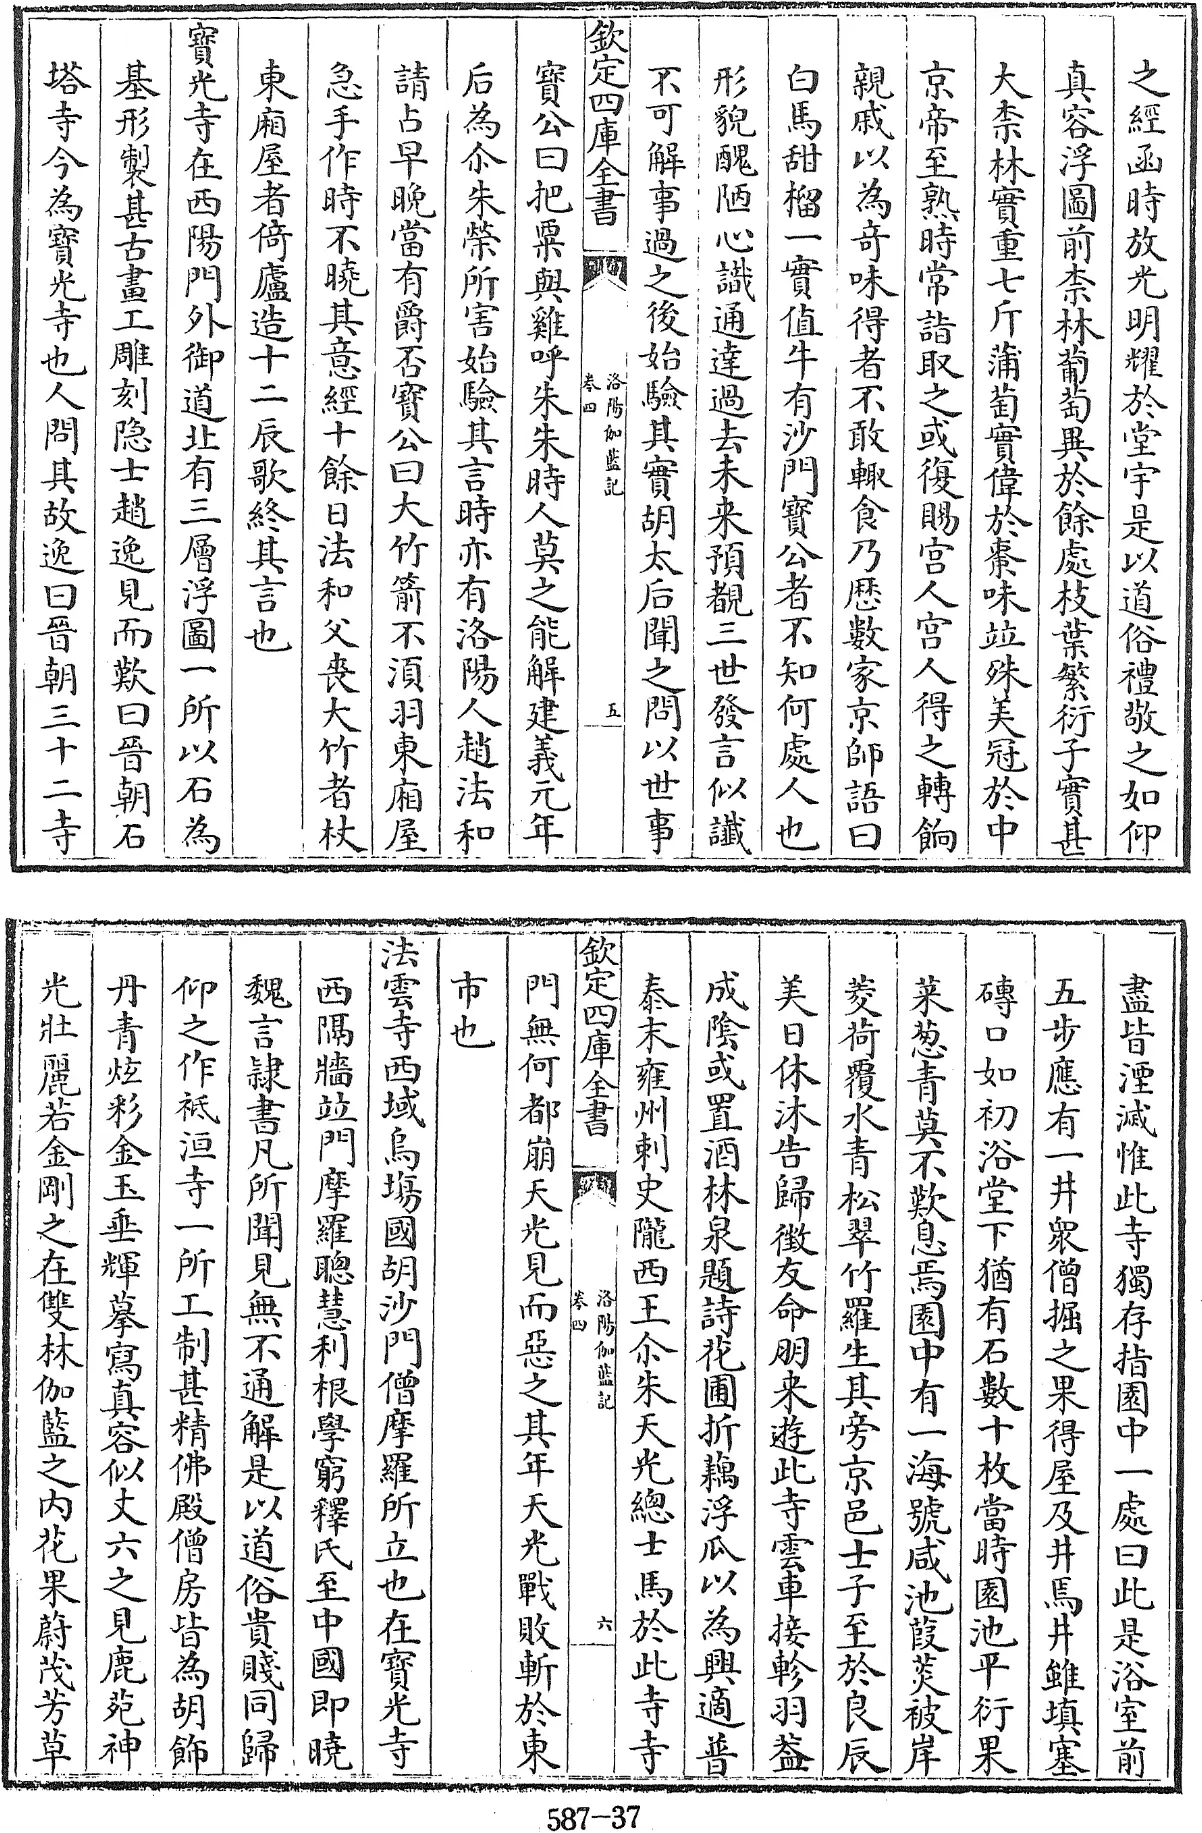 之經函時放光明耀於堂宇是以道俗禮敬之如仰
真容浮圖前柰林葡萄異於餘處枝葉繁衍子實甚
大柰林實重七斤蒲萄實偉於棗味竝殊美冠於中
京帝至熟時常詣取之或復賜宫人宫人得之轉餉
親戚以為奇味得者不敢輙食乃歴數家京師語曰
白馬甜榴一實值牛有沙門寶公者不知何處人也
形貌醜陋心識通達過去未来預覩三世發言似讖
不可解事過之後始驗其實胡太后聞之問以世事
欽定四庫全書
洛陽伽藍記
卷四
五
寶公曰把粟與雞呼朱朱時人莫之能解建義元年
后為尒朱榮所害始驗其言時亦有洛陽人趙法和
請占早晚當有爵否寶公曰大竹箭不須羽東廂屋
急手作時不曉其意經十餘日法和父喪大竹者杖
東廂屋者倚廬造十二辰歌終其言也
寶光寺在西陽門外御道北有三層浮圖一所以石為
基形製甚古畫工雕刻隐士趙逸見而歎曰晉朝石
塔寺今為寶光寺也人問其故逸曰晉朝三十二寺
盡皆湮滅惟此寺獨存指園中一處曰此是浴室前
五步應有一井衆僧掘之果得屋及井焉井雖填塞
磚口如初浴堂下猶有石數十枚當時園池平衍果
菜葱青莫不歎息焉園中有一海號咸池葭菼被岸
菱荷覆水青松翠竹羅生其旁京邑士子至於良辰
美日休沐告歸徵友命朋来遊此寺雲車接軫羽葢
成隂或置酒林泉題詩花圃折藕浮瓜以為興適普
泰末雍州刺史隴西王尒朱天光總士馬於此寺寺
欽定四庫全書
洛陽伽藍記
卷四
六
門無何都崩天光見而惡之其年天光戰敗斬於東
市也
法雲寺西域烏塲國胡沙門僧摩羅所立也在寶光寺
西隔牆竝門摩羅聰慧利根學窮釋氏至中國即曉
魏言隸書凡所聞見無不通解是以道俗貴賤同歸
仰之作祗洹寺一所工制甚精佛殿僧房皆為胡飾
丹青炫彩金玉垂輝摹寫真容似丈六之見鹿苑神
光壯麗若金剛之在雙林伽藍之内花果蔚茂芳草
587-37